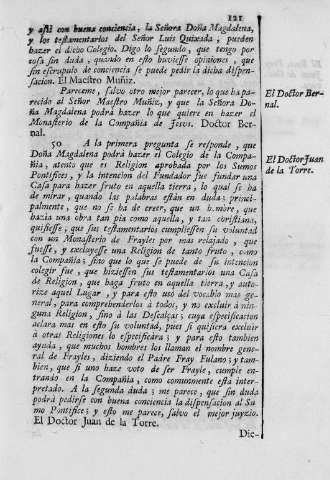 121
y assi con buena conciencia, la Señora Doña Magdalena,
y los testamentarios del Señor Luis Quixada, pueden
hazer el dicho Colegio. Digo lo segundo, que tengo por
cosa sin duda, quando en esto huviesse opiniones, que
sin escrupulo de conciencia se puede pedir la dicha dispen-
sacion. El Maestro Muñiz.
Pareceme, salvo otro mejor parecer, lo que ha pa-
recido al Señor Maestro Muñiz, y que la Señora Do-
ña Magdalena podrá hazer lo que quiere en hazer el
Monasterio de la Compañia de Jesus. Doctor Ber-
nal.
El Doctor Ber-
nal.
50 A la primera pregunta se responde, que
Doña Magdalena podrá hazer el Colegio de la Compa-
ñia, atento que es Religion aprobada por los Sumos
Pontifices, y la intencion del Fundador fue fundar una
Casa para hazer fruto en aquella tierra, lo qual se ha
de mirar, quando las palabras están en duda; princi-
palmente, que no se há de creer, que un hombre, que
hazia una obra tan pia como aquella, y tan christiana,
quisiesse, que sus testamentarios cumpliessen su voluntad
con un Monasterio de Frayles por mas relajado, que
fuesse, y excluyesse una Religion de tanto fruto, como
la Compañia; sino que lo que se puede de su intencion
colegir fue, que hiziessen sus testamentarios una Casa
de Religion, que haga fruto en aquella tierra, y auto-
rize aquel Lugar, y para esto usó del vocablo mas ge-
neral, para comprehenderlos à todos, y no excluir à nin-
guna Religion, sino á las Descalças; cuya especificacion
aclara mas en esto su voluntad, pues si quisiera excluir
à otras Religiones lo especificára; y para esto tambien
ayuda, que muchos hombres los llaman el nombre gene-
ral de Frayles, diziendo el Padre Fray Fulano; y tam-
bien, que si uno haze voto de ser Frayle, cumple en-
trando en la Compañia, como comunmente está inter-
pretado. A la segunda duda; me parece, que sin duda
podrá pedirse con buena conciencia la dispensacion al Su-
mo Pontifice; y esto me parece, salvo el mejor juyzio.
El Doctor Juan de la Torre.
El Doctor Juan
de la Torre.
Dic-